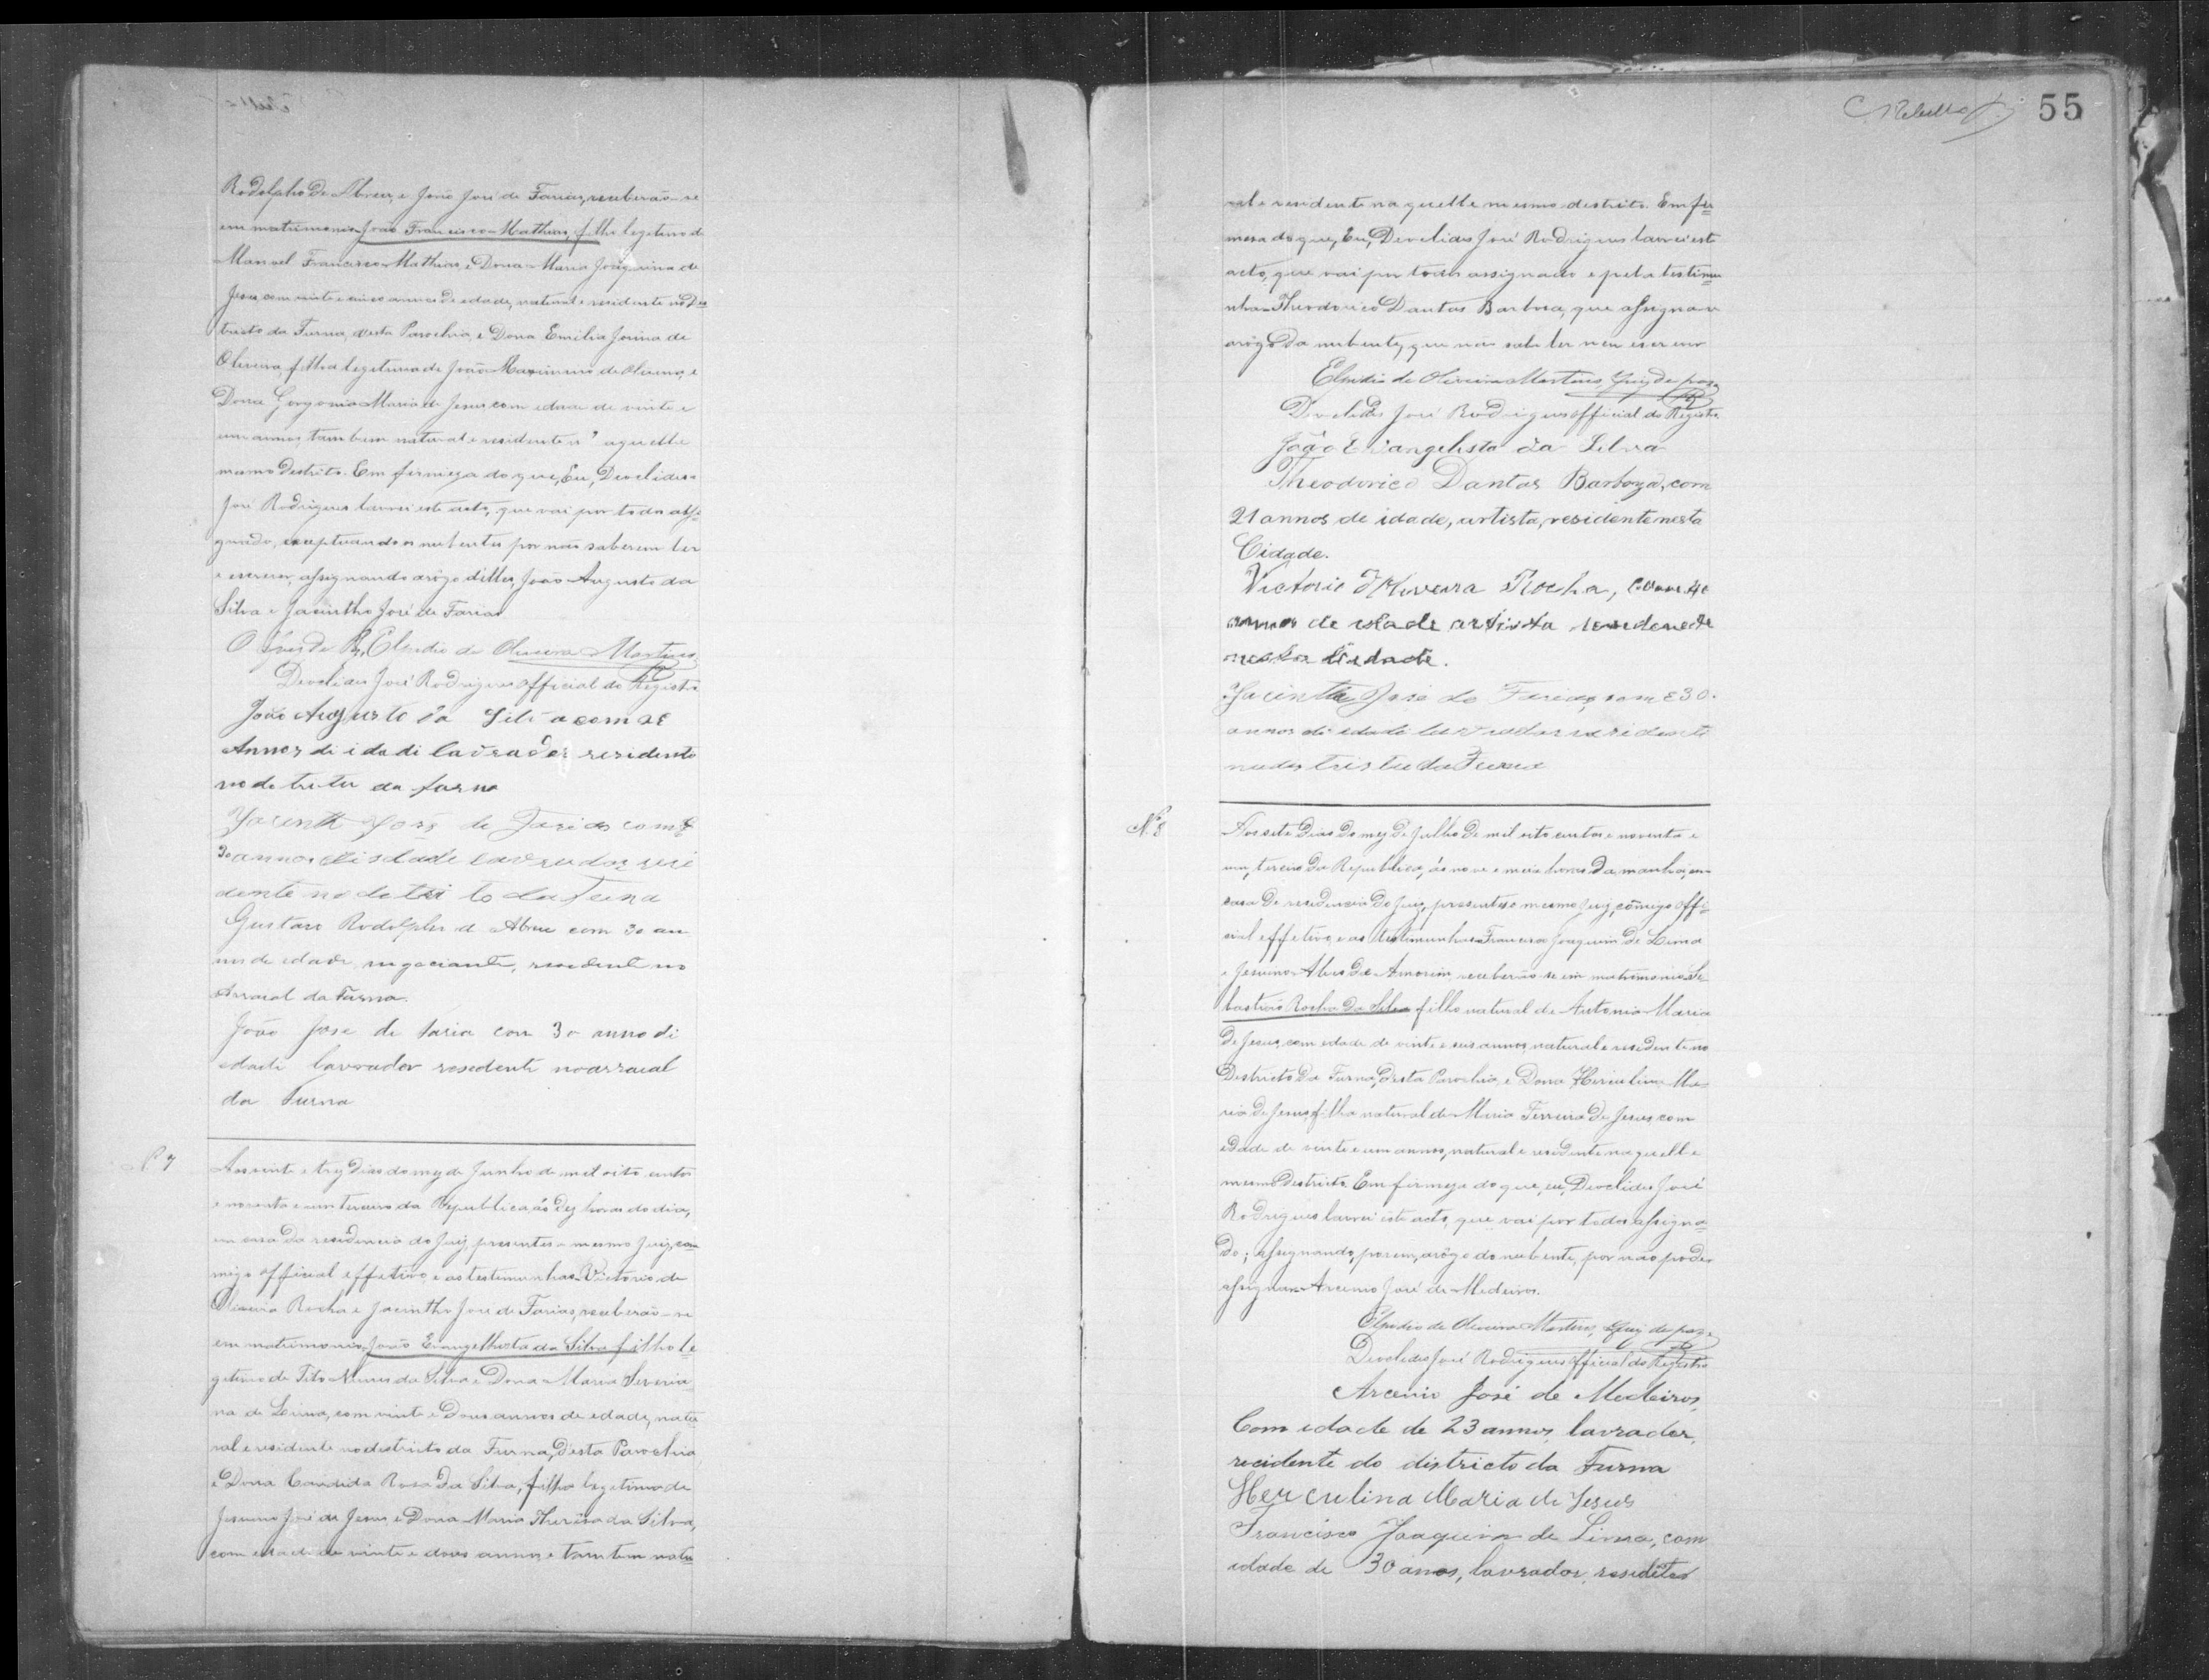 Rodolpho de Abreu, e João José de Farias, receberão-se
em matrimonio João Francisco Mathias, filho legitimo de
Manoel Francisco Mathias, e Dona Maria Joaquina de
Jesus, com vinte e cinco annos de edade, natural e residente no Des=
tricto da Furna, desta Parochia, e Dona Emilia Jovina de
Oliveira, filha legitima de João Maximino de Oliveira, e
Dona Gorgonia Maria de Jesus, com edade de vinte e
um annos, tambem natural e residente n'aquelle
mesmo Destricto. Em firmeza do que, Eu, Deoclides
José Rodrigues lavrei este acto, que vai por todos assi=
gnado, exceptuando os nubentes por não saberem ler
e escrever, assignando a rôgo dilles, João Augusto da
Silva e Jacintho José de Farias
O Juis de Elpidio de Oliveira Martins
Deoclides José Rodrigues official do Registro
João Augusto da Silva com
Annos di idadi lavrador residente
no da furna
Jacinth José de Farias com
30 annos di idade lavrador resi
dente no detrito da Furna
Gustavo Rodolpho d Abreu com 30 an
nos de edade, negociante, residente no
Arraial da Furna.
João Jose de faria con 30 anno di
edade lavrador residente no arraial
da Furna
N 7
Aos vinte e trez dias do mez de Junho de mil oito centos
e noventa e um terceiro da Republica, ás dez horas do dia,
em casa da residencia do Juiz, presentes o mesmo Juiz, co=
migo official effetivo, e as testemunhas Victorio de
Oliveira Rocha e Jacintho José de Farias, receberão-se
em matrimonio, João Evangelhista da Silva filho le=
gitimo de Tito Nunes da Silva e Dona Maria Severia=
na de Lima, com vinte e dous annos de edade, natu=
ral e residente no destricto da Furna, desta Parochia
e Dona Candida Rosa da Silva, filha legitima de
Jesuino José de Jesus, e Dona Maria Thereza da Silva,
com edade de vinte e dous annos, e tambem natu=
55
ral e residente naquelle mesmo destricto. Em fir=
mesa do que, Eu, Deoclides José Rodrigues lavrei este
acto, que vai por todos assignado e pela testimu=
nha Theodorico Dantas Barbosa, que assignou
a rôgo da nubente, que não sabe ler nem escrever
Elpidio de Oliveira Martins, Juiz de paz
Deoclides José Rodrigues official do Registro
João Evangelista da Silva
Theodorico Dantas Barboza, com
21 annos de idade, artista, residente nesta
Cidade.
Victorio d'Oliveira Rocha, com 40
annos de idade artista residende
nesta Cidade.
Jacintho José de Farias com 30
annos di idade lavrador residente
no destristu da Furna
N. 8
Aos sete dias do mez de Julho de mil oito centos e noventa e
um, terceiro da Republica, ás nove e meia horas da manhã, em
casa de residencia do Juiz, presentes o mesmo Juiz, cômigo offi=
cial effetivo, e as testimunhas Francisco Joaquim de Lima
e Jesuino Alves de Amorim receberão-se em matrimonio Se=
bastião Rocha da Silva filho natural de Antonia Maria
de Jesus, com edade de vinte e seis annos, natural e residente no
Destricto da Furna, desta Parochia, e Dona Herculina Ma=
ria de Jesus, filha natural de Maria Ferreira de Jesus, com
edade de vinte e um annos, natural e residente naquelle
mesmo destricto. Em firmeza do que, eu, Deoclides José
Rodrigues lavrei este acto, que vai por todos assigna=
do; assignando, porem, a rôgo do nubente, por não poder
assignar Arcenio José de Medeiros.
Elpidio de Oliveira Martins, Juiz de paz
Deoclides José Rodrigues official do Registro
Arcenio José de Medeiros,
Com edade de 23 annos, lavrador,
recidente do districto da Furna
Herculina Maria de Jesus
Francisco Joaquim de Lima, com
idade de 30 anos, lavrador,